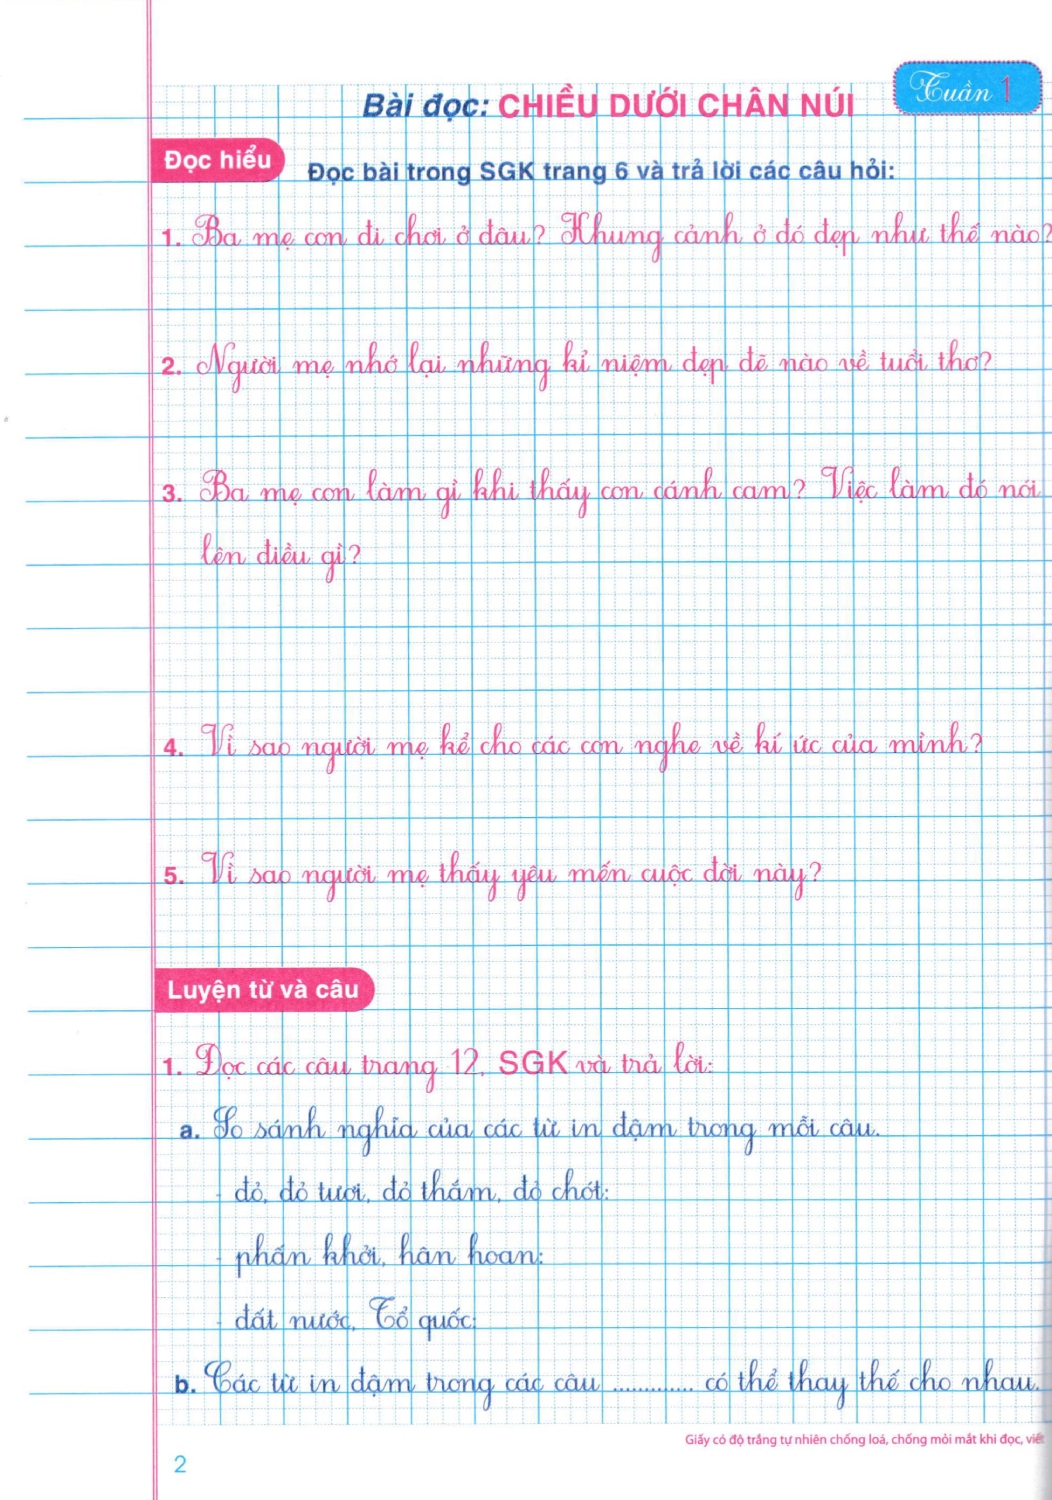 Tuần 1
Bài đọc: CHIỀU DƯỚI CHÂN NÚI
Đọc hiểu
Đọc bài trong SGK trang 6 và trả lời các câu hỏi:
1. Ba mẹ con đi chơi ở đâu? Khung cảnh ở đó đẹp như thế nào?
2. Người mẹ nhớ lại những kỉ niệm đẹp đẽ nào về tuổi thơ?
3. Ba mẹ con làm gì khi thấy con cánh cam? Việc làm đó nói
lên điều gì?
4. Vì sao người mẹ kể cho các con nghe về kí ức của mình?
5. Vì sao người mẹ thấy yêu mến cuộc đời này?
Luyện từ và câu
1. Đọc các câu trang 12, SGK và trả lời:
a. So sánh nghĩa của các từ in đậm trong mỗi câu.
- đỏ, đỏ tươi, đỏ thắm, đỏ chót:
- phấn khởi, hân hoan:
- đất nước, Tổ quốc:
b. Các từ in đậm trong các câu ............. có thể thay thế cho nhau.
Giấy có độ trắng tự nhiên chống loá, chống mỏi mắt khi đọc, viết
2